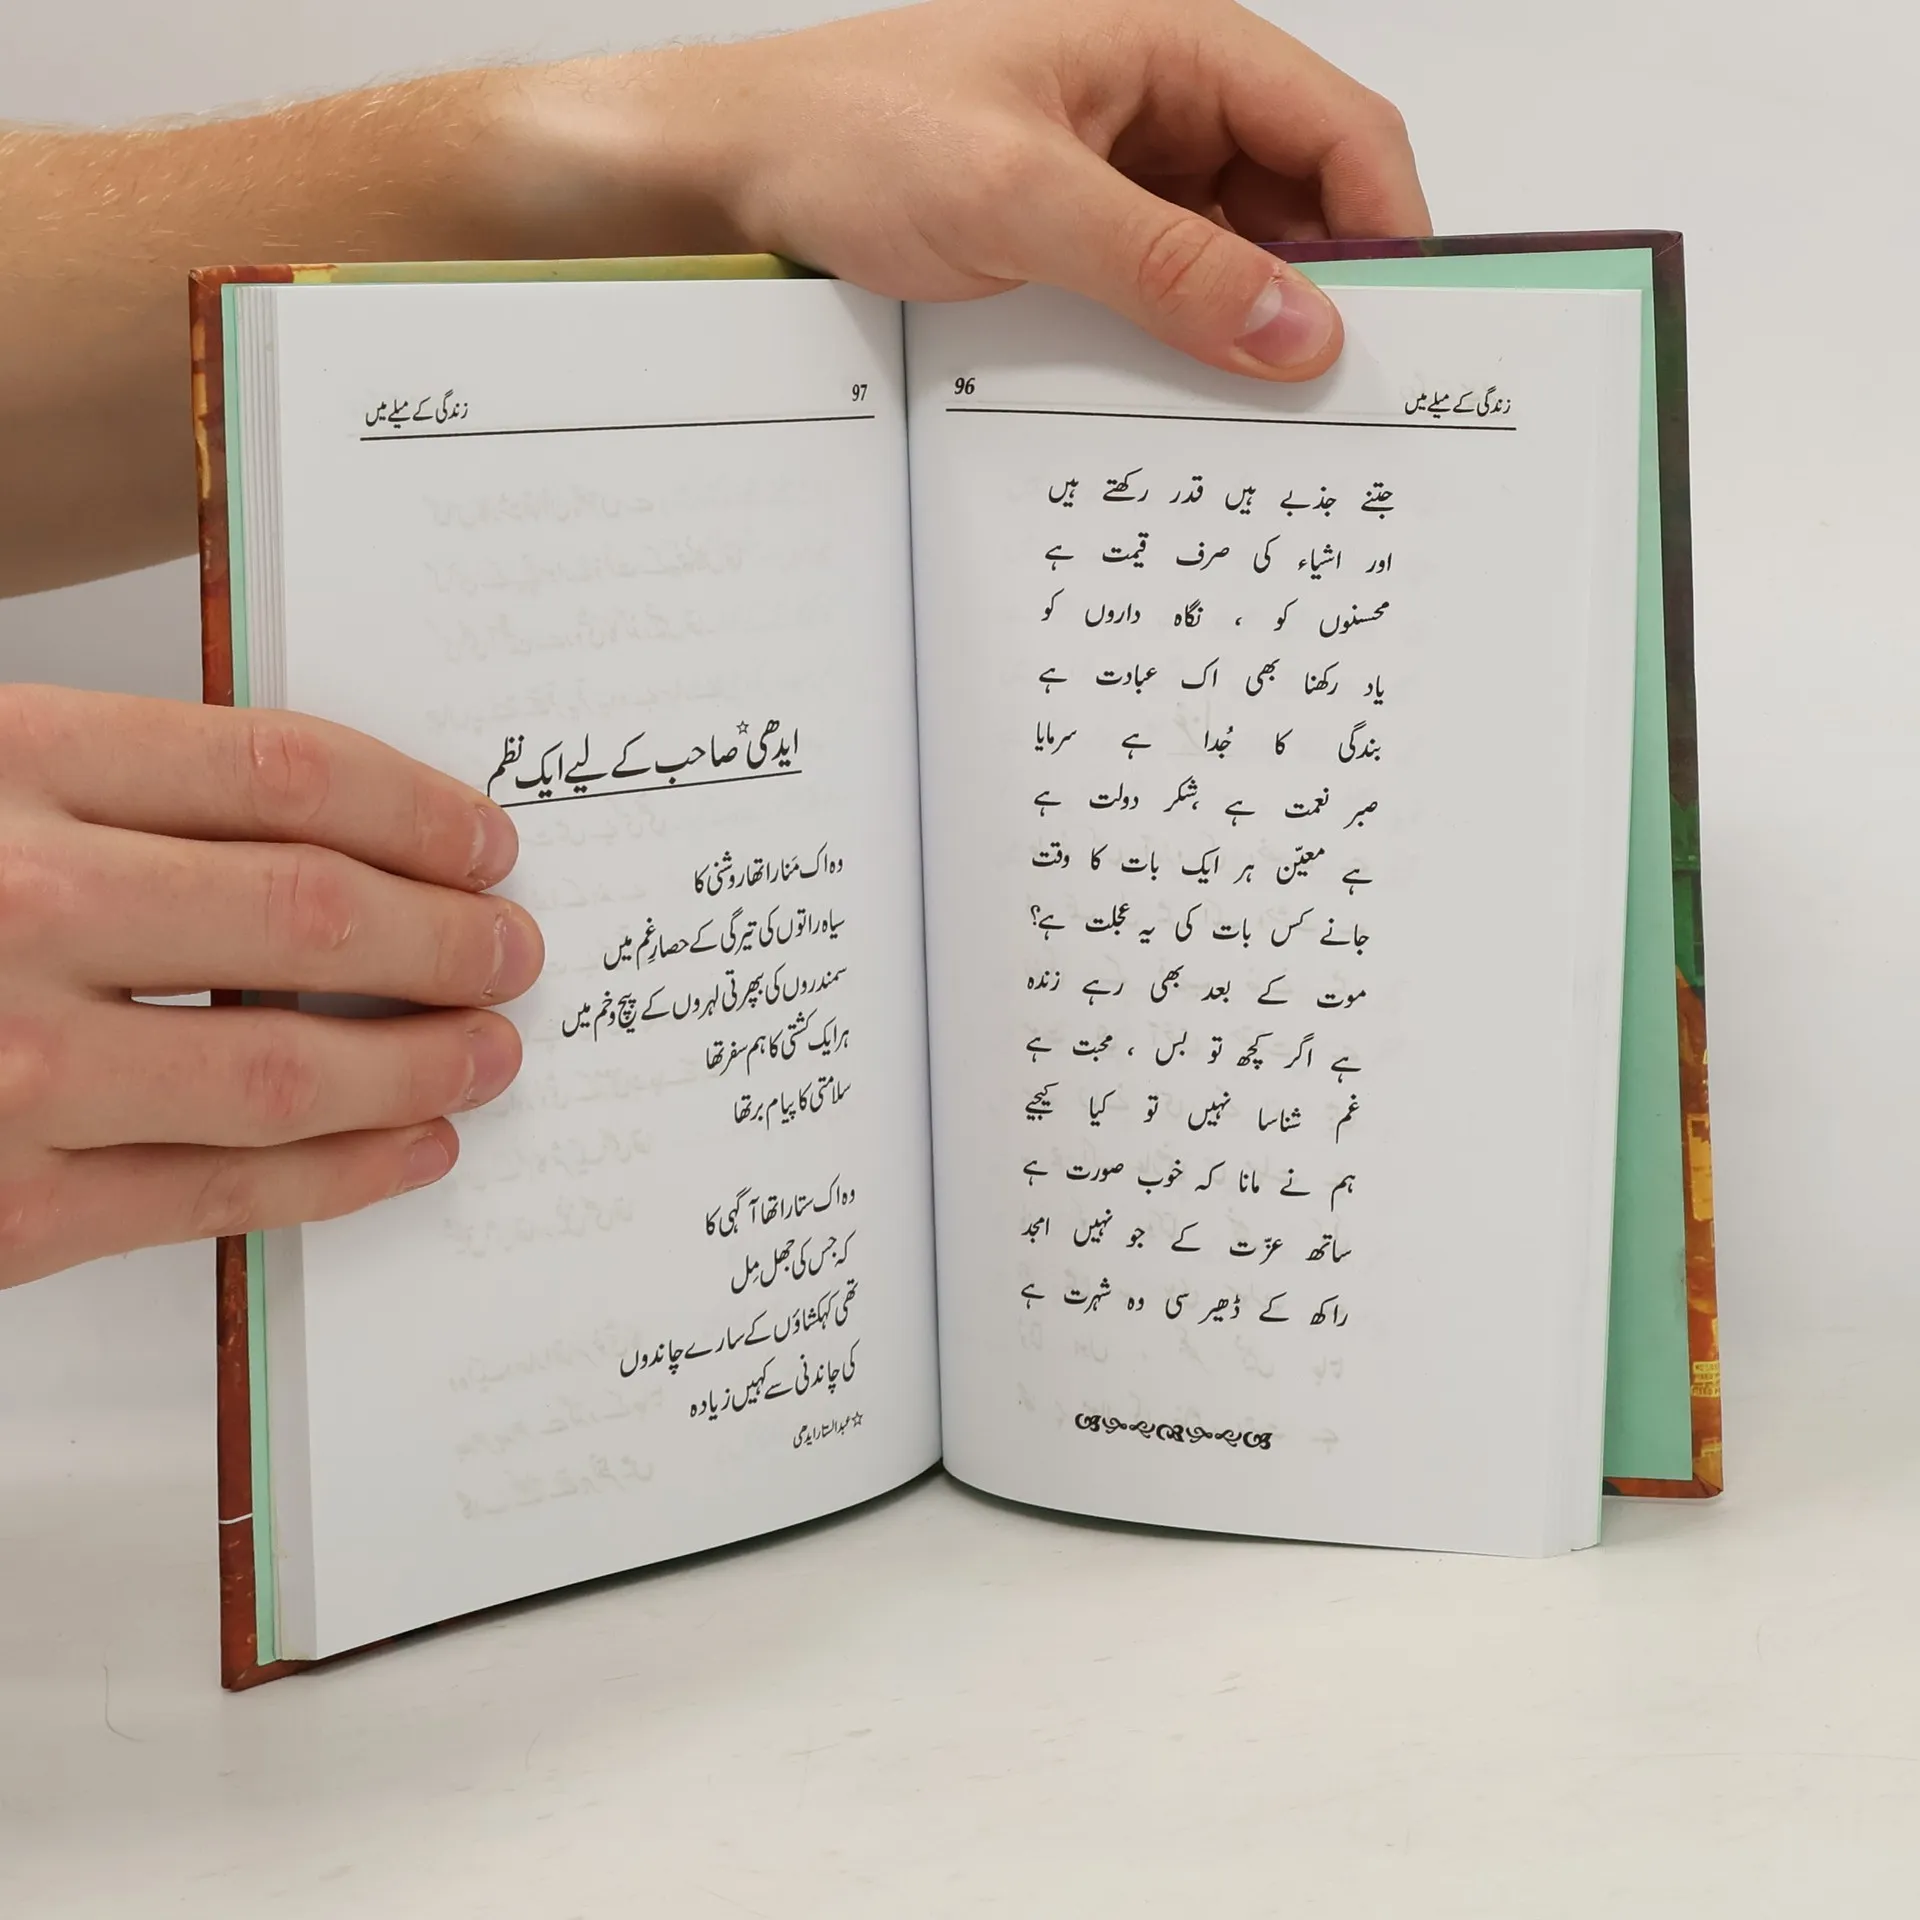 زندگی کے میلے میں
96
جتنے جذبے ہیں قدر رکھتے ہیں
اور اشیاء کی صرف قیمت ہے
محسنوں کو ، نگاہ داروں کو
یاد رکھنا بھی اک عبادت ہے
بندگی کا جُدا ہے سرمایا
صبر نعمت ہے ،شکر دولت ہے
ہے معیّن ہر ایک بات کا وقت
جانے کس بات کی یہ عجلت ہے؟
موت کے بعد بھی رہے زندہ
ہے اگر کچھ تو بس ، محبت ہے
غم شناسا نہیں تو کیا کیجیے
ہم نے مانا کہ خوب صورت ہے
ساتھ عزّت کے جو نہیں امجد
راکھ کے ڈھیر سی وہ شہرت ہے
97
زندگی کے میلے میں
ایدھی☆ صاحب کے لیے ایک نظم
وہ اک مَنارا تھا روشنی کا
سیاہ راتوں کی تیرگی کے حصارِ غم میں
سمندروں کی بپھرتی لہروں کے پیچ و خم میں
ہر ایک کشتی کا ہم سفر تھا
سلامتی کا پیام بر تھا
وہ اک ستارا تھا آگہی کا
کہ جس کی جھل مِل
تھی کہکشاؤں کے سارے چاندوں
کی چاندنی سے کہیں زیادہ
☆عبدالستار ایدھی